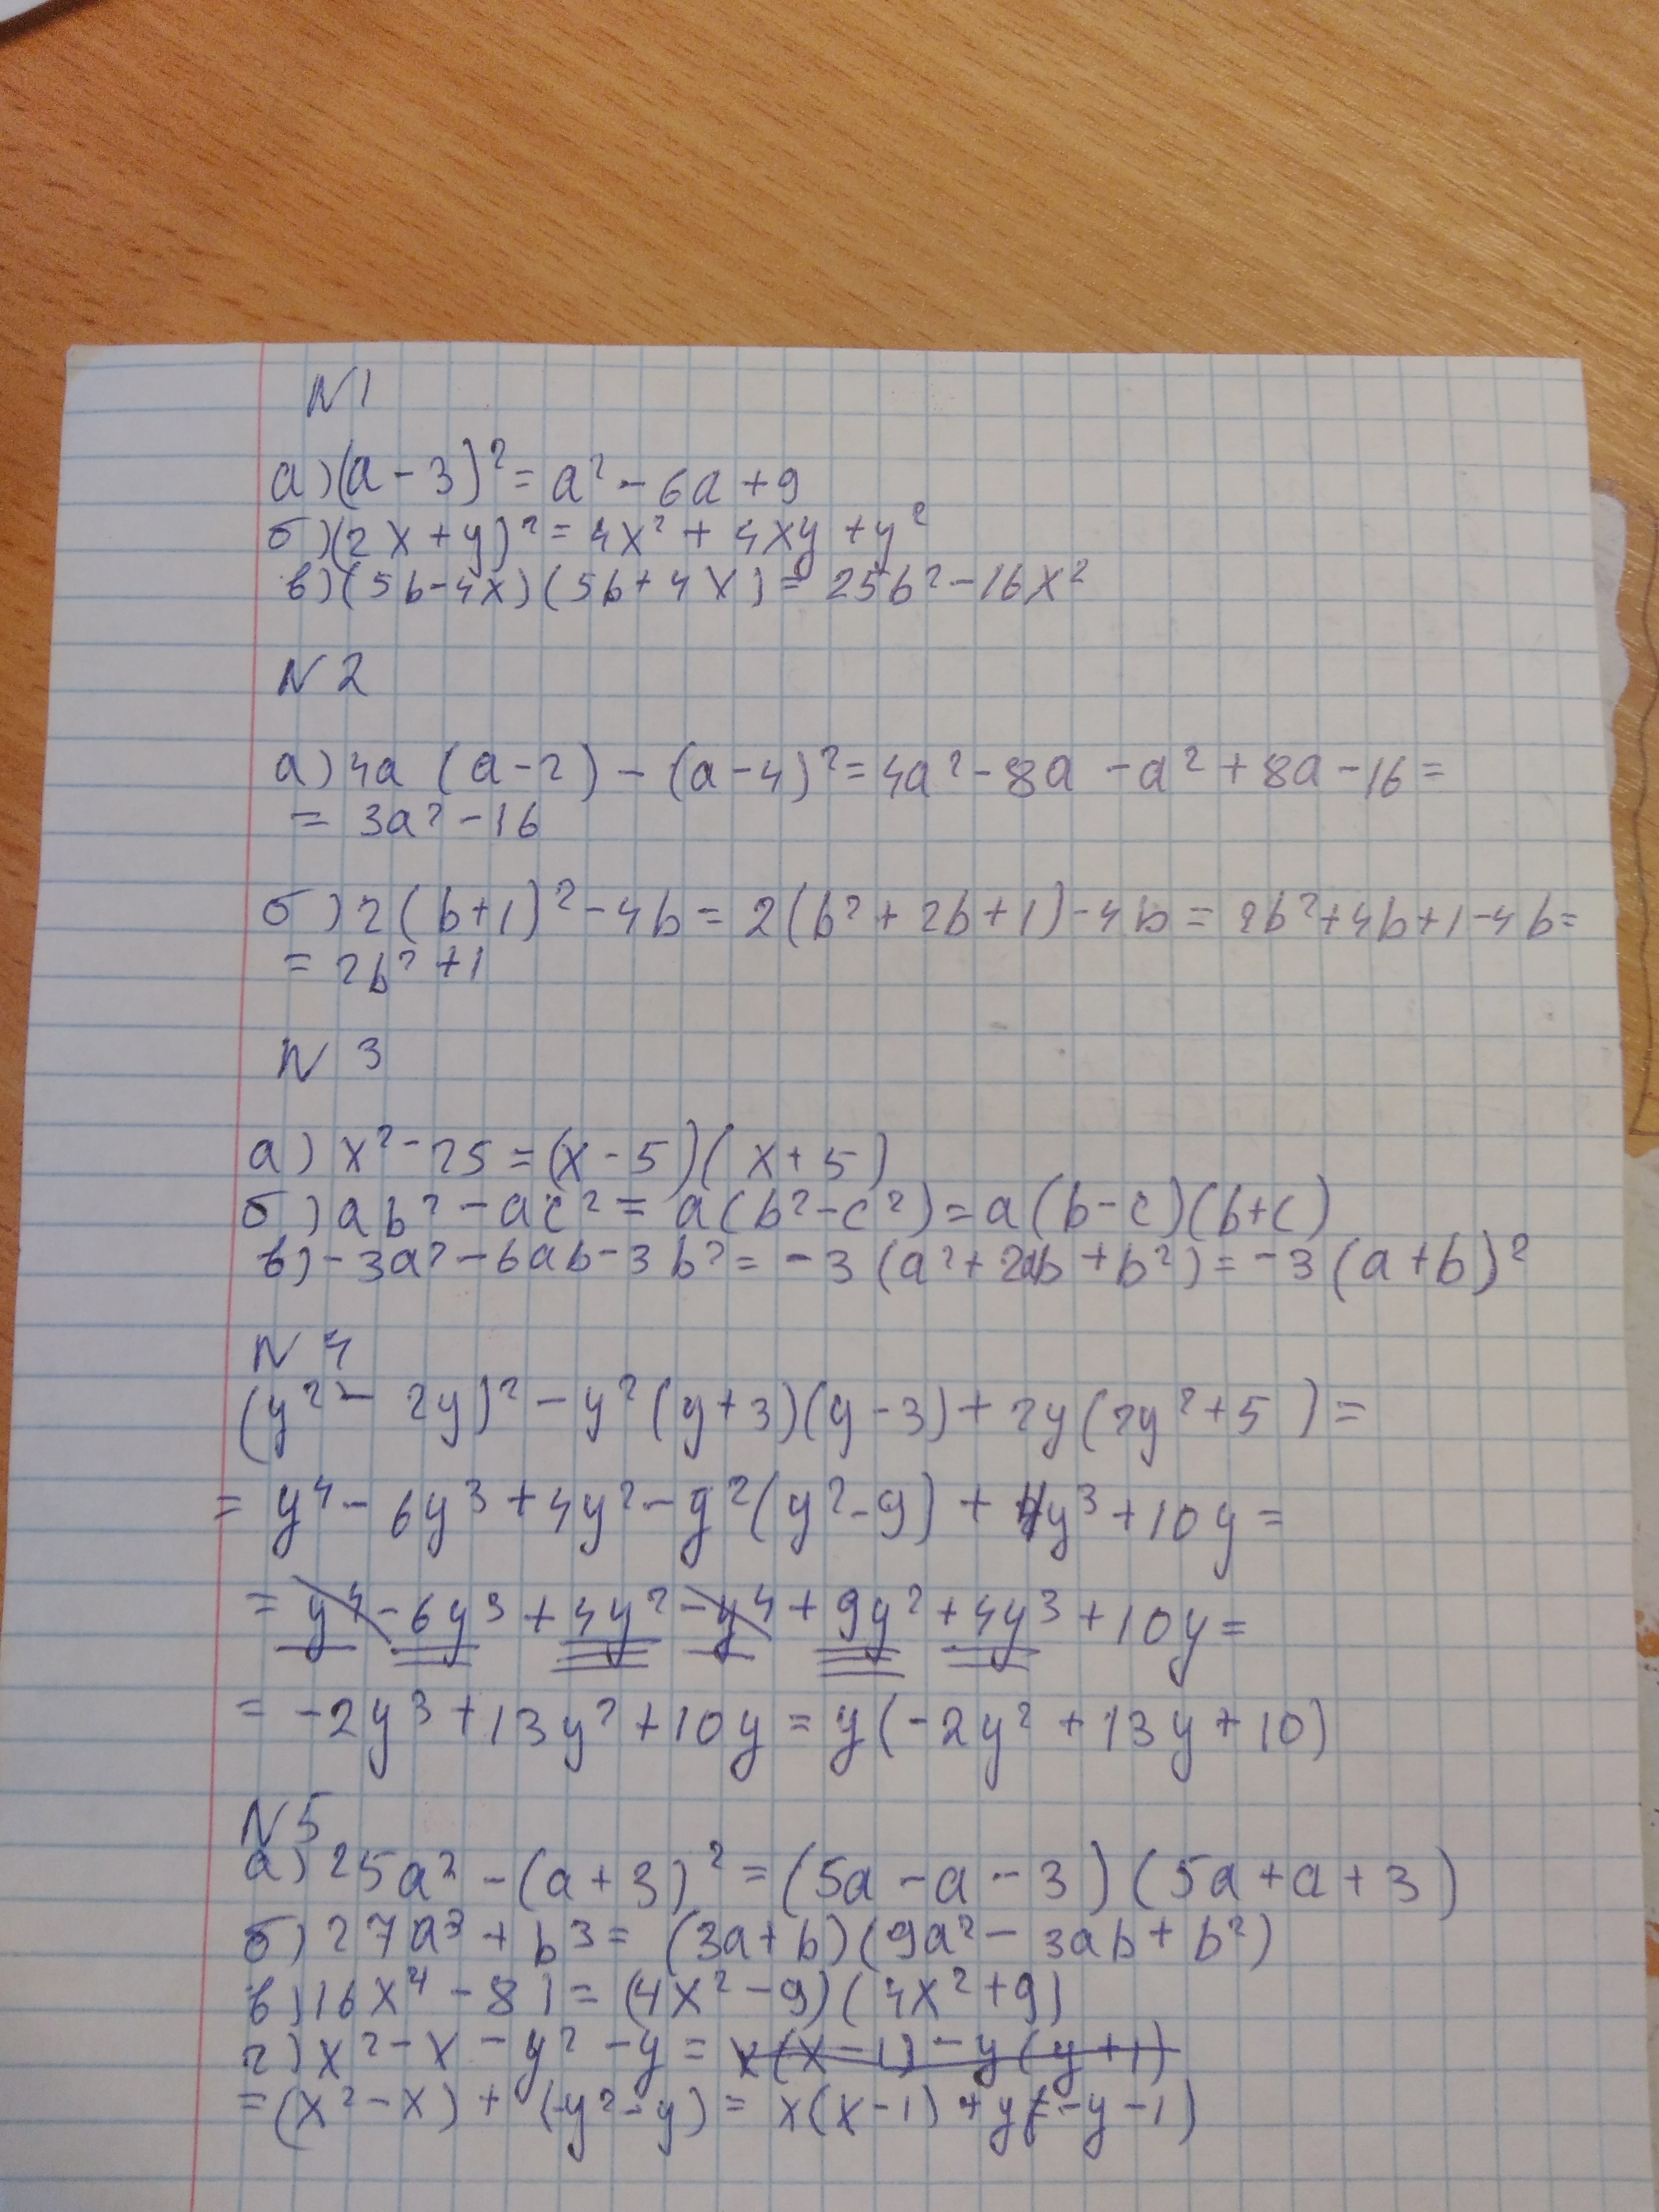 N 1
а) (a - 3)² = a² - 6a + 9
б) (2x + y)² = 4x² + 4xy + y²
в) (5b - 4x) (5b + 4x) = 25b² - 16x²
N 2
а) 4a (a - 2) - (a - 4)² = 4a² - 8a - a² + 8a - 16 =
= 3a² - 16
б) 2 (b + 1)² - 4b = 2(b² + 2b + 1) - 4b = 2b² + 4b + 1 - 4b =
= 2b² + 1
N 3
а) x² - 25 = (x - 5) (x + 5)
б) ab² - ac² = a (b² - c²) = a (b - c) (b + c)
в) -3a² - 6ab - 3b² = -3 (a² + 2ab + b²) = -3 (a + b)²
N 4
(y² - 2y)² - y² (y + 3) (y - 3) + 2y (2y² + 5) =
= y⁴ - 6y³ + 4y² - y² (y² - 9) + 4y³ + 10y =
= y⁴ - 6y³ + 4y² - y⁴ + 9y² + 4y³ + 10y =
= -2y³ + 13y² + 10y = y (-2y² + 13y + 10)
N 5
а) 25a² - (a + 3)² = (5a - a - 3) (5a + a + 3)
б) 27a³ + b³ = (3a + b) (9a² - 3ab + b²)
в) 16x⁴ - 81 = (4x² - 9) (4x² + 9)
г) x² - x - y² - y = x (x - 1) - y (y + 1)
= (x² - x) + (-y² - y) = x (x - 1) + y (-y - 1)